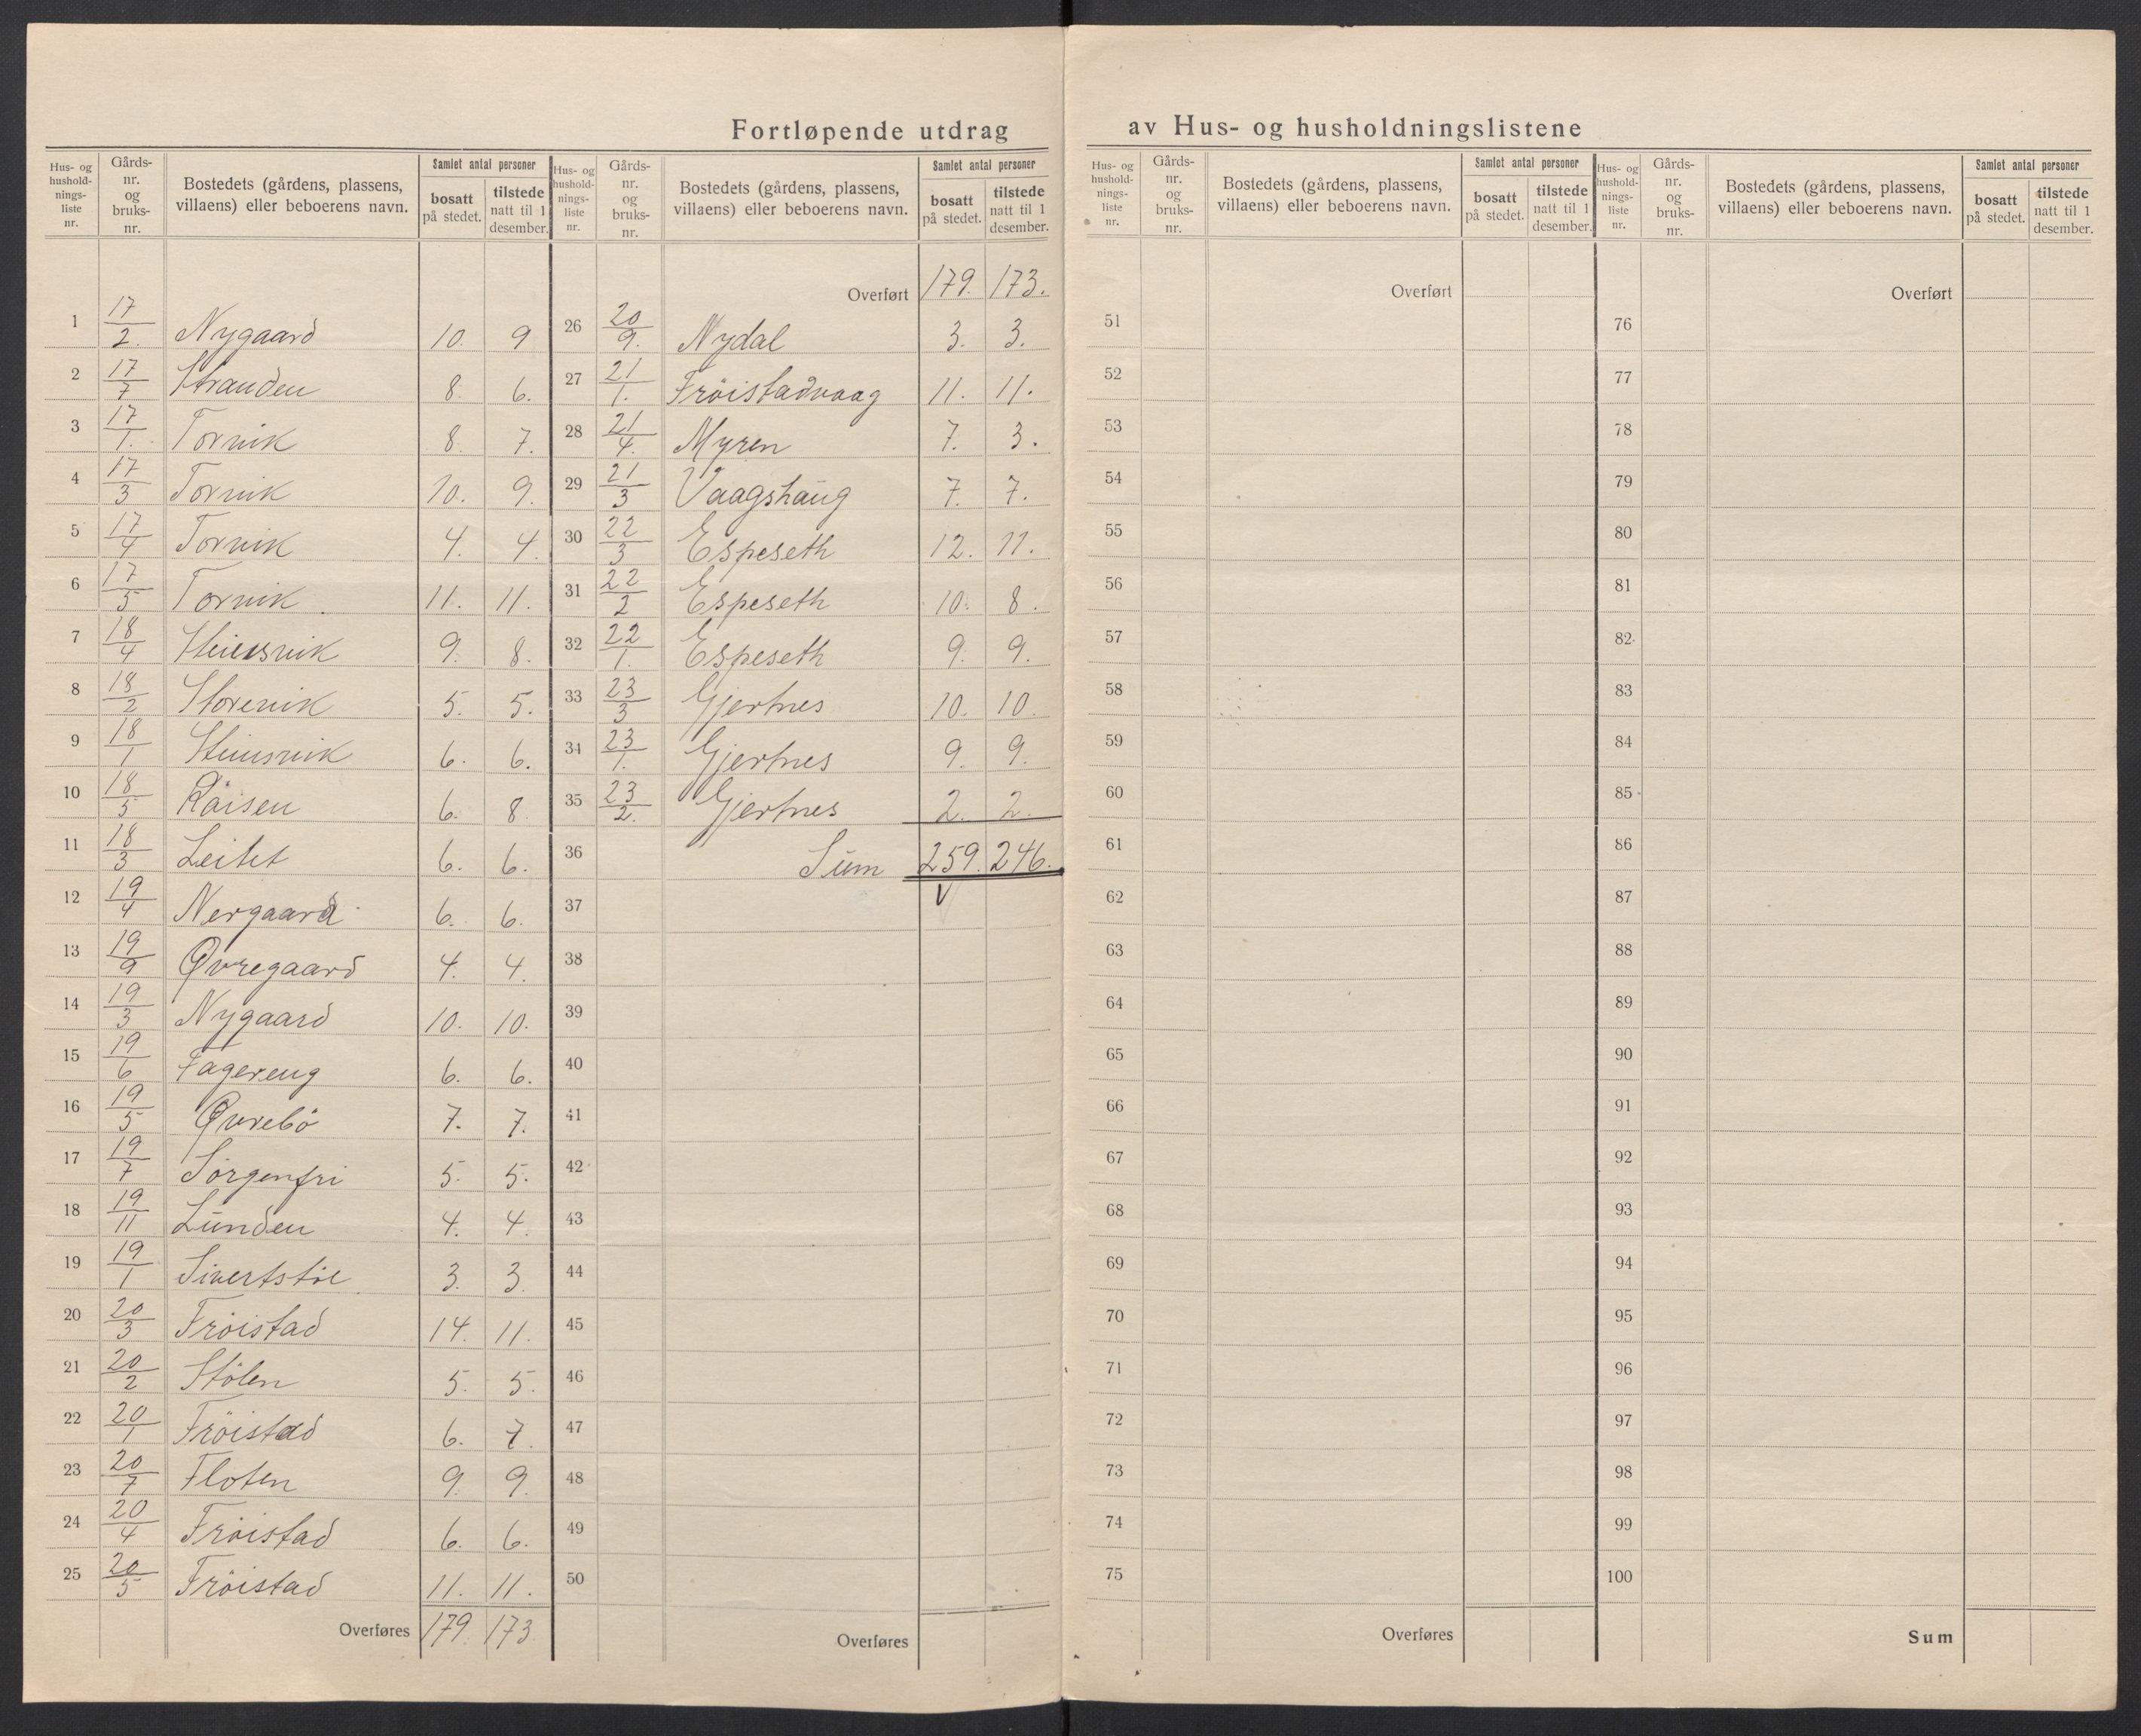 Fortløpende utdrag av Hus- og husholdningslistene
Hus- og hushold-nings-liste nr. | Gårds-nr. og bruks-nr. | Bostedets (gårdens, plassens, villaens) eller beboerens navn. | Samlet antal personer | bosatt på stedet. | tilstede natt til 1 desember.
1 17/2. Nygaard 10. 9
2 17/7 Stranden 8. 6.
3 17/1. Torvik 8. 7.
4 17/3 Torvik 10. 9.
5 17/4 Torvik 4. 4.
6 17/5 Torvik. 11. 11.
7 18/4 Steinsvik 9. 8.
8 18/2 Storevik 5. 5.
9 18/1 Steinsvik 6. 6.
10 18/5 Röisen 6. 8.
11 18/3 Leitet 6. 6.
12 19/4 Nergaard 6. 6.
13 19/9 Øvregaard 4. 4.
14 19/3 Nygaard 10. 10.
15 19/6 Fagereng 6. 6.
16 19/5 Øvrebö 7. 7.
17 19/7 Sorgenfri 5. 5.
18 19/11 Lunden 4. 4.
19 19/1 Sivertstöl 3. 3.
20 20/3 Fröistad 14. 11.
21 20/2 Stölen 5. 5.
22 20/1 Fröistad 6. 7.
23 20/7 Floten 9. 9.
24 20/4 Fröistad 6. 6.
25 20/5 Fröistad 11. 11.
Overføres 179. 173.
Hus- og hushold-nings-liste nr. | Gårds-nr. og bruks-nr. | Bostedets (gårdens, plassens, villaens) eller beboerens navn. | Samlet antal personer | bosatt på stedet. | tilstede natt til 1 desember.
Overført 179. 173.
26 20/9. Nydal 3. 3.
27 21/1. Fröistadvaag 11. 11.
28 21/4. Myren 7. 3.
29 21/3 Vaagshaug 7. 7.
30 22/3 Espeseth 12. 11.
31 22/2 Espeseth 10. 8.
32 22/1. Espeseth 9. 9.
33 23/3 Gjertnes 10. 10.
34 23/1. Gjertnes 9. 9.
35 23/2. Gjertnes 2. 2.
36 Sum 259. 246.
37
38
39
40
41
42
43
44
45
46
47
48
49
50
Overføres
Hus- og hushold-nings-liste nr. | Gårds-nr. og bruks-nr. | Bostedets (gårdens, plassens, villaens) eller beboerens navn. | Samlet antal personer | bosatt på stedet. | tilstede natt til 1 desember.
Overført
51
52
53
54
55
56
57
58
59
60
61
62
63
64
65
66
67
68
69
70
71
72
73
74
75
Overføres
Hus- og hushold-nings-liste nr. | Gårds-nr. og bruks-nr. | Bostedets (gårdens, plassens, villaens) eller beboerens navn. | Samlet antal personer | bosatt på stedet. | tilstede natt til 1 desember.
Overført
76
77
78
79
80
81
82
83
84
85
86
87
88
89
90
91
92
93
94
95
96
97
98
99
100
Sum